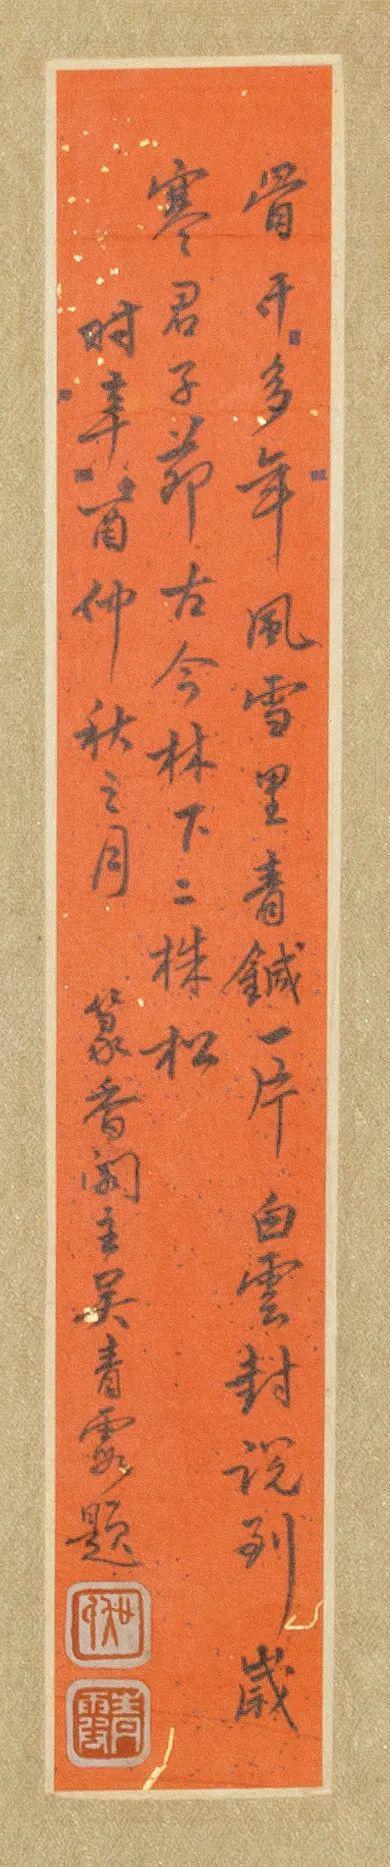 骨干多年風雪里青鍼一片白雲封說到歲
寒君子節古今林下二株松
时辛酉仲秋之月 篆香阁主吴青霞题
青霞